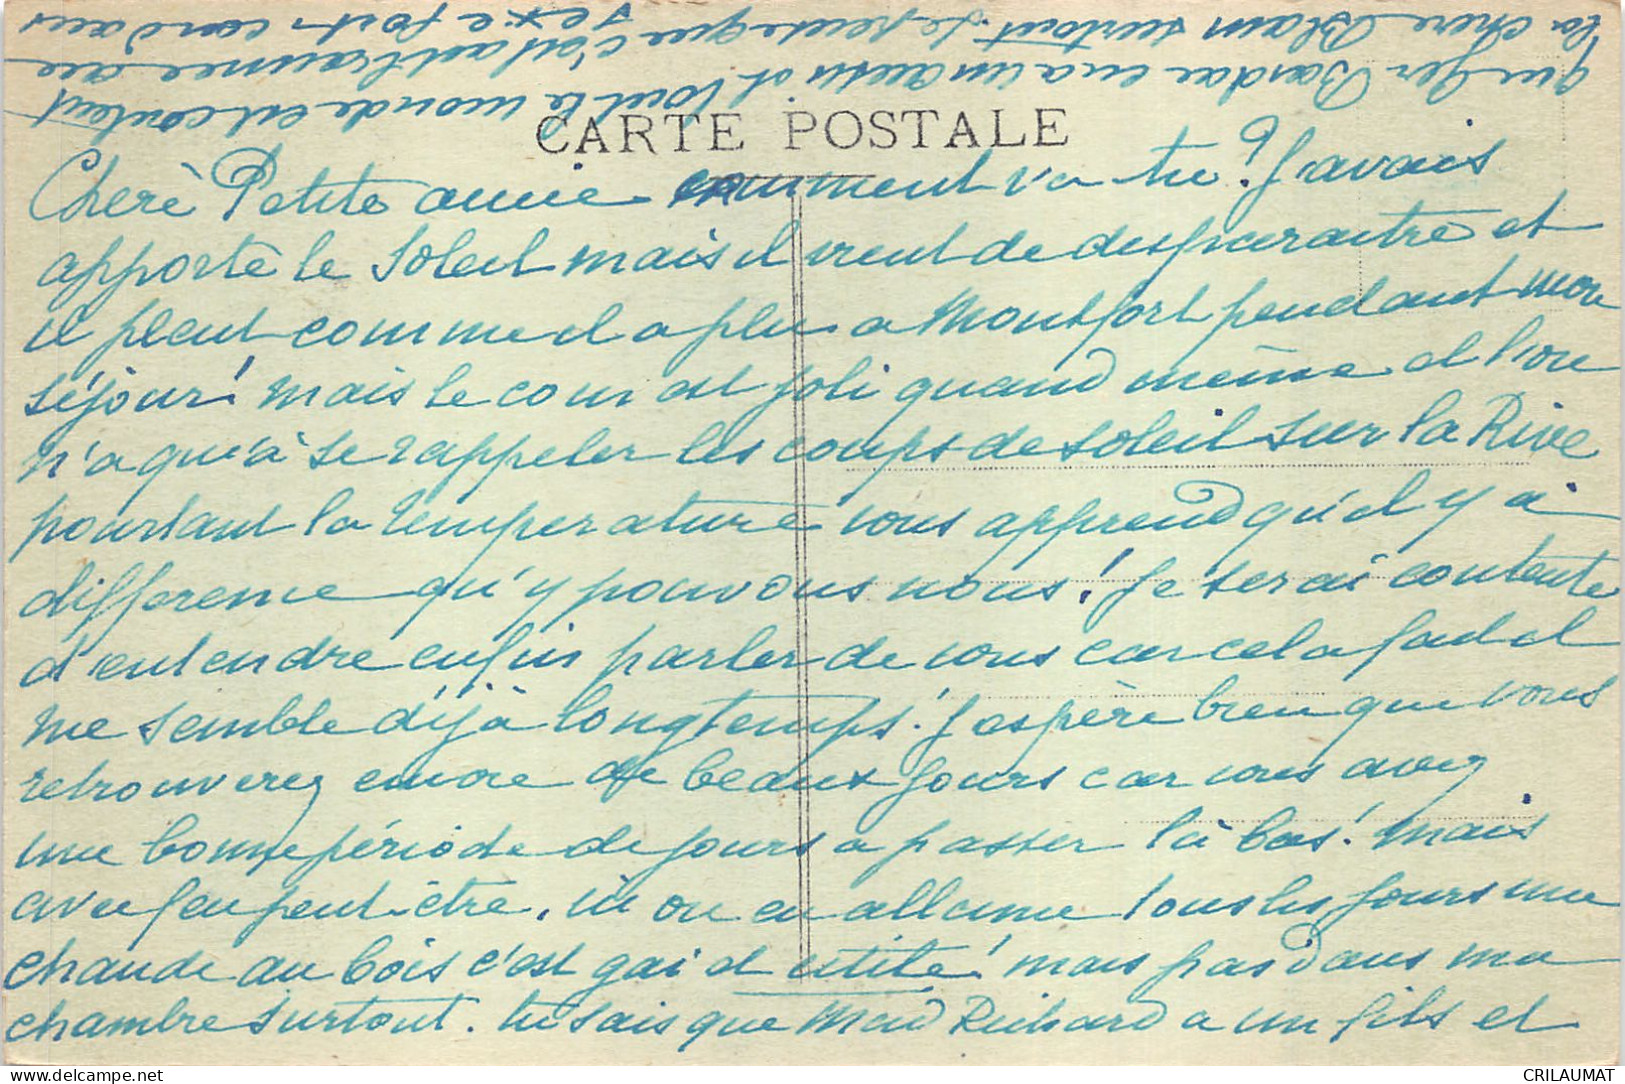 CARTE POSTALE
Cherè Petite amie comment va tu? J'avais
apporté le soleil mais il vient de disparaitre et
il pleut comme il a plu a Montfort pendant mon
séjour! mais le coin est joli quand même et l'on
n'a qu'à se rappeler les coups de soleil sur la Rive
pourtant la temperature vous apprend qu'il y a
difference qu'y pouvons nous! Je serai contente
d'entendre enfin parler de vous car cela fait
me semble déjà longtemps! J'espère bien que vous
retrouverez encore de beaux jours car vous avez
une bonne période de jours a passer là bas! mais
avec feu peut-être, ici on en allume tous les jours une
chaude au bois c'est gai et utile! mais pas dans ma
chambre surtout. tu sais que Mad Richard a un fils et
que Ger Bardac en a un aussi et tout le monde est content
la chere Blam surtout. Je pense que c'est
sexe fort